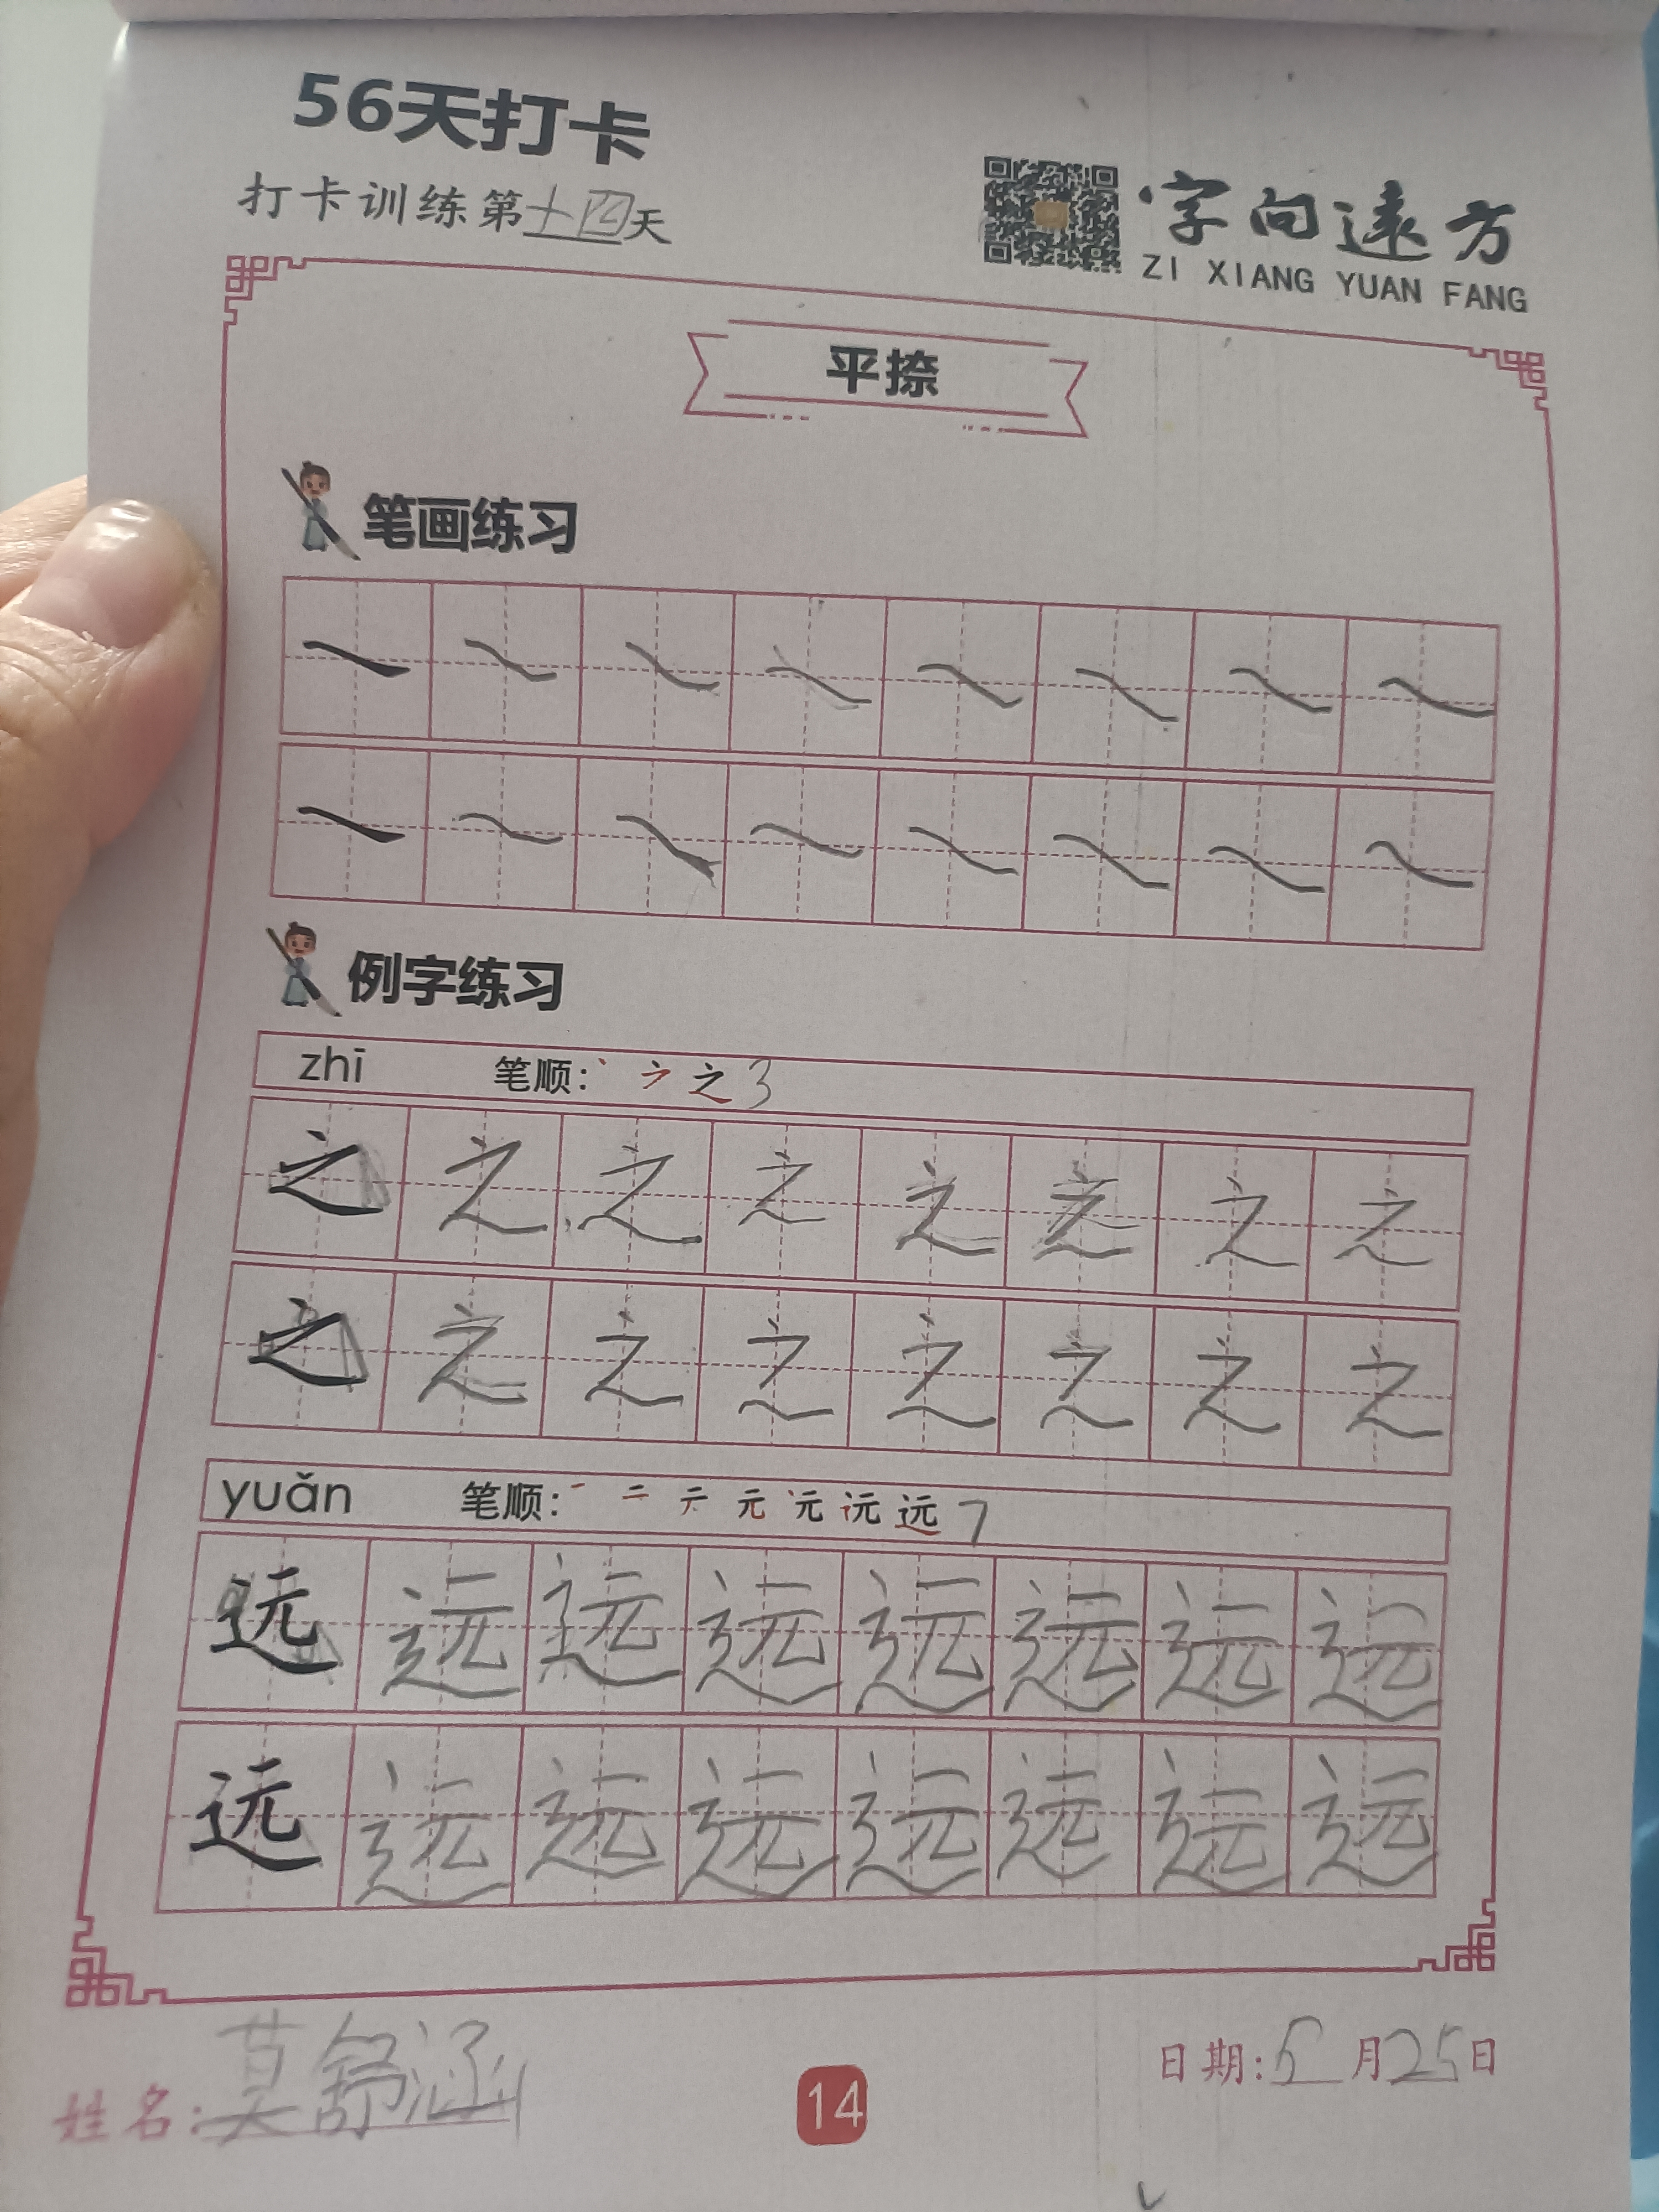 56天打卡
打卡训练第十四天
字向遠方
ZI XIANG YUAN FANG
平捺
笔画练习
例字练习
zhī 笔顺: 之 3
之 之 之 之 之 之 之 之
之 之 之 之 之 之 之 之
yuǎn 笔顺: 一 二 元 远 7
远 远 远 远 远 远 远 远
远 远 远 远 远 远 远 远
姓名: 莫舒涵
日期: 5月25日
14